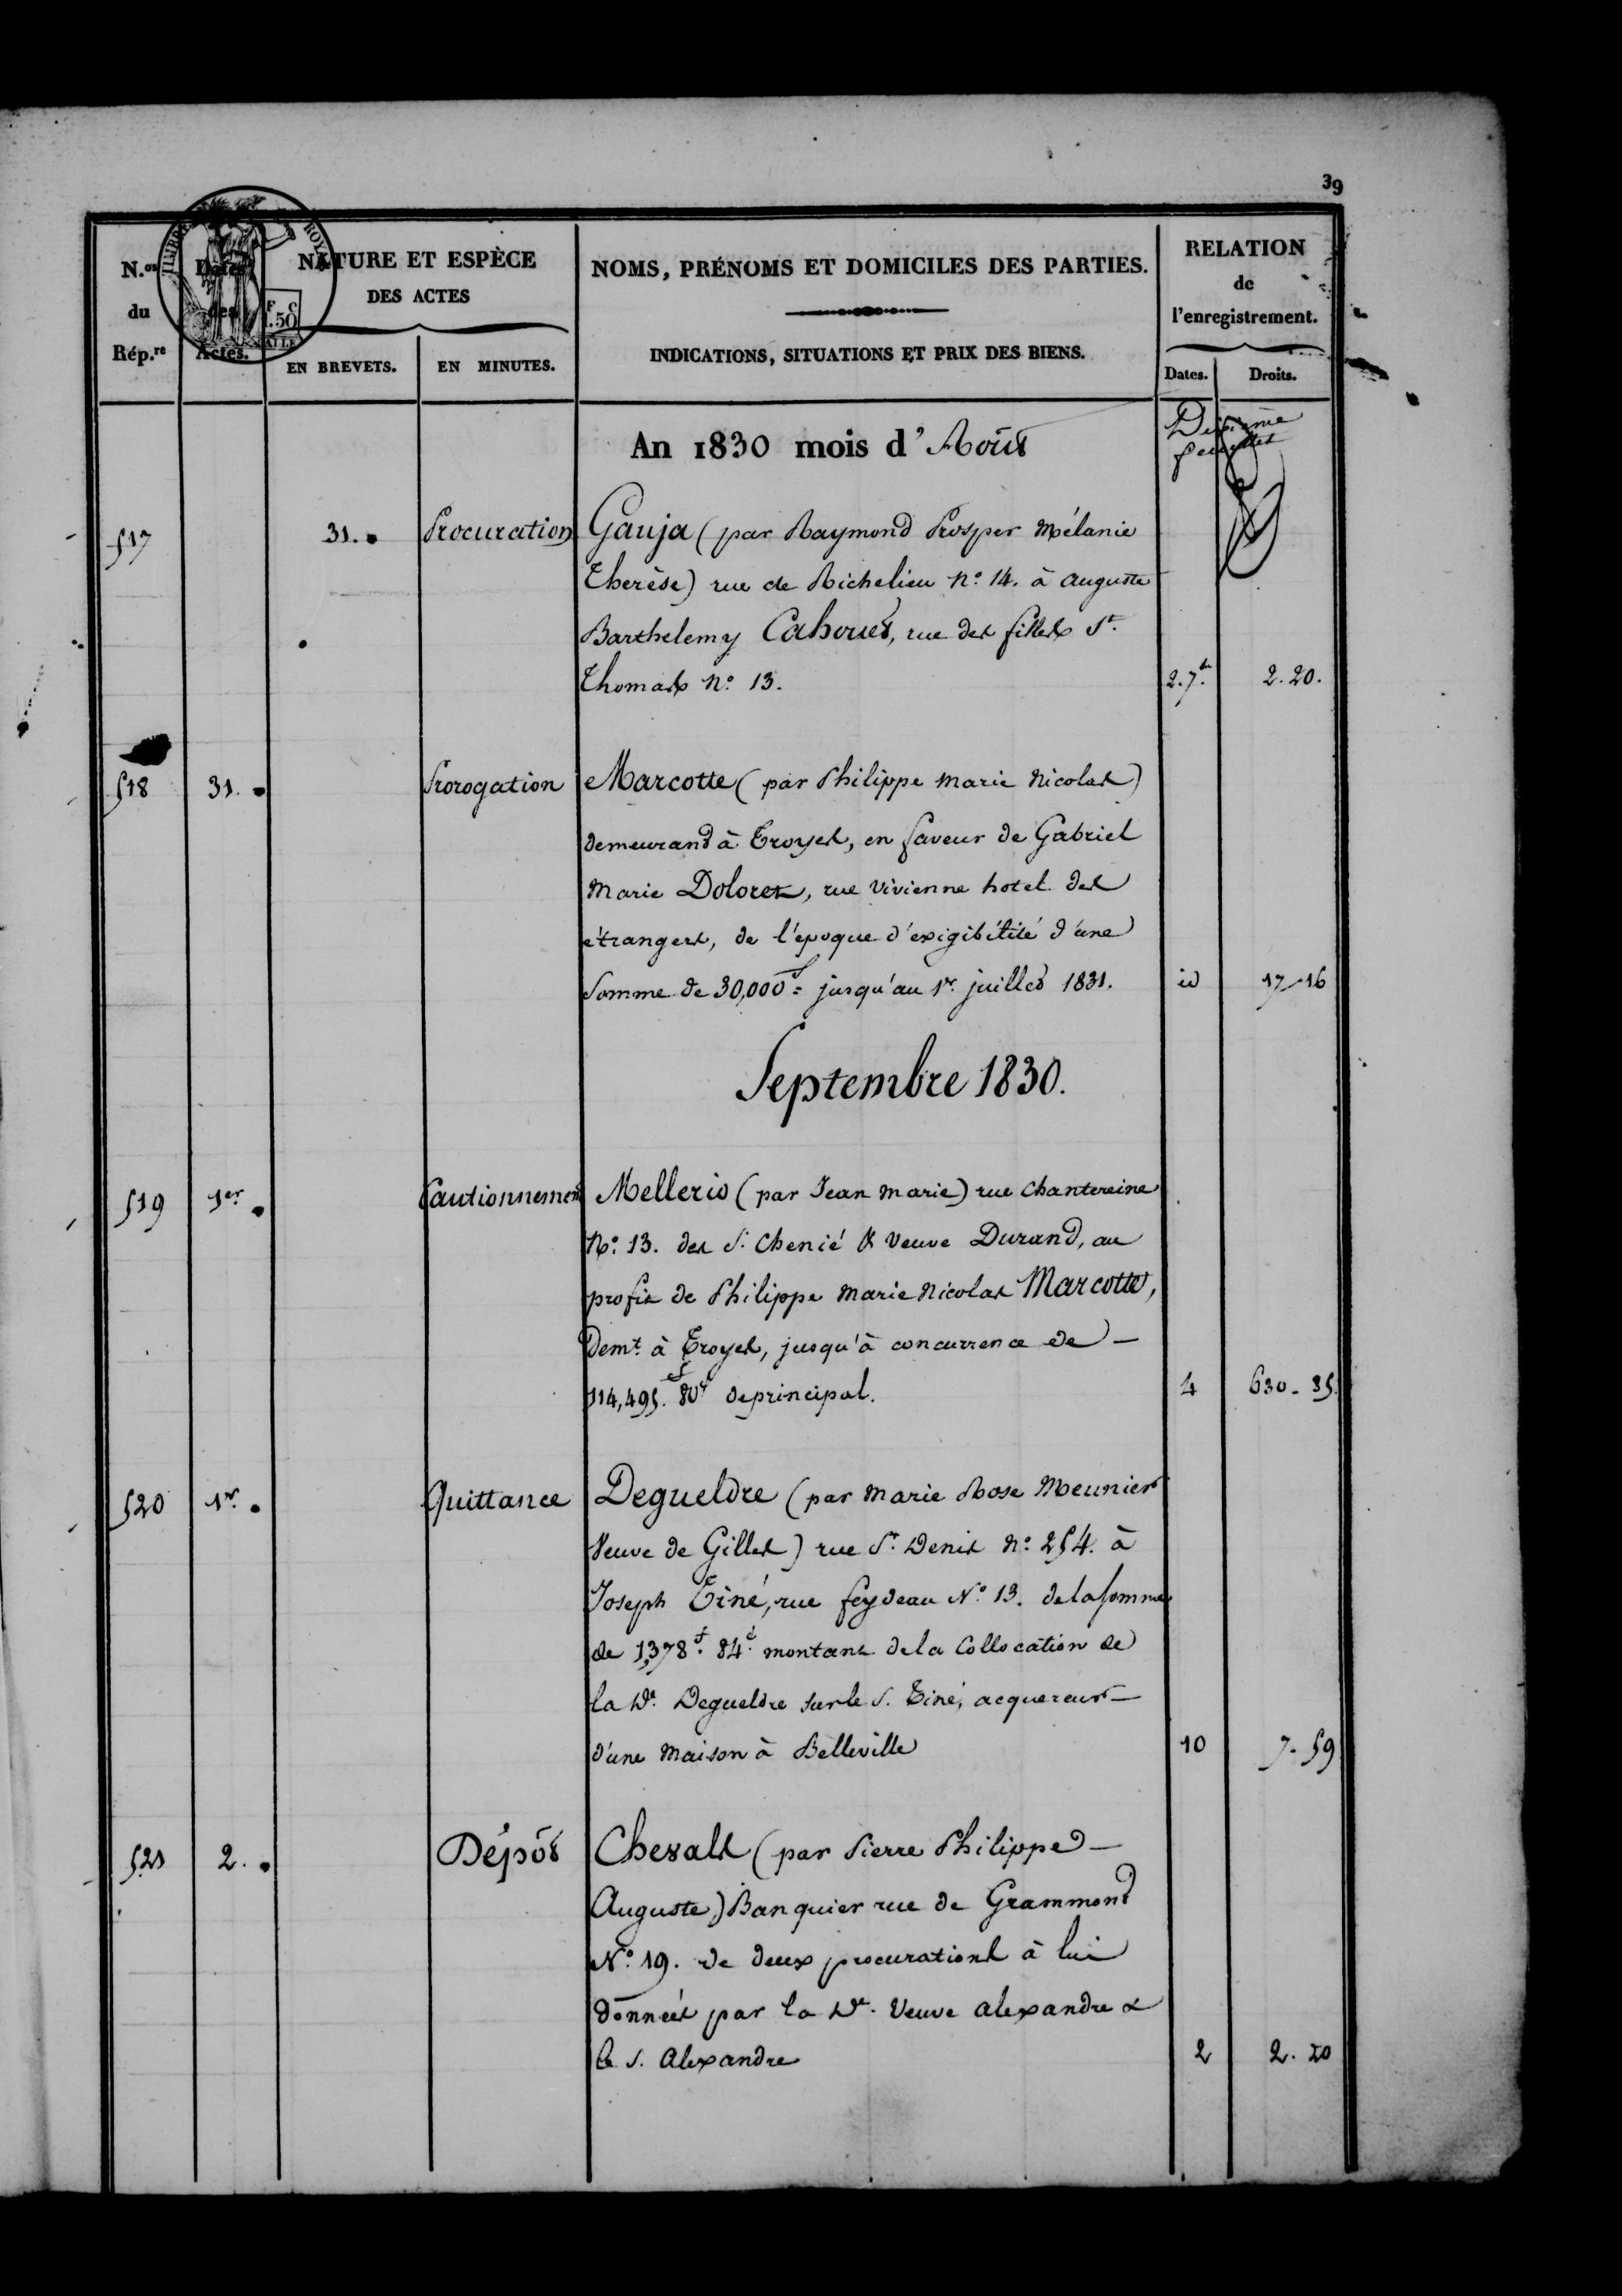 39
N.os du Rép.re
Dates des Actes.
NATURE ET ESPÈCE
DES ACTES
EN BREVETS.
EN MINUTES.
NOMS, PRÉNOMS ET DOMICILES DES PARTIES.
INDICATIONS, SITUATIONS ET PRIX DES BIENS.
RELATION
de
l'enregistrement.
Dates.
Droits.
TIMBRE ROYAL
F C
1.50
An 1830 mois d'Août
517 31. Procuration Gauja (par Raymond Prosper Mélanie
Therèse) rue de Richelieu N.o 14. à Auguste
Barthelemy Cahouet, rue des filles St.
Thomas N.o 13. 2.7.bre 2.20.
518 31. Prorogation Marcotte (par Philippe Marie Nicolas)
demeurant à Troyes, en faveur de Gabriel
Marie Dolorez, rue Vivienne hotel des
étrangers, de l'époque d'exigibilité d'une
Somme de 30,000f jusqu'au 1er. juillet 1831. id 17-16
Septembre 1830.
519 1er. Cautionnement Mellerio (par Jean Marie) rue Chantereine
N.o 13. des S. Chenié & Veuve Durand, au
profit de Philippe Marie Nicolas Marcotte,
demt. à Troyes, jusqu'à concurrence de —
114,495.f 80c de principal. 4 630-85.
520 1er. Quittance Degueldre (par Marie Rose Meunier
Veuve de Gilles) rue St. Denis N.o 254. à
Joseph Tiné, rue feydeau N.o 13. de la somme
de 1,378f. 84c. montant de la Collocation de
la De. Degueldre sur le S. Tiné, acquereur —
d'une Maison à Belleville 10 7-59
521 2. Dépôt Chevals (par Pierre Philippe —
Auguste) Banquier rue de Grammont
N.o 19. de deux procurations à lui
données par la De. Veuve Alexandre &
le S. Alexandre 2 2.20